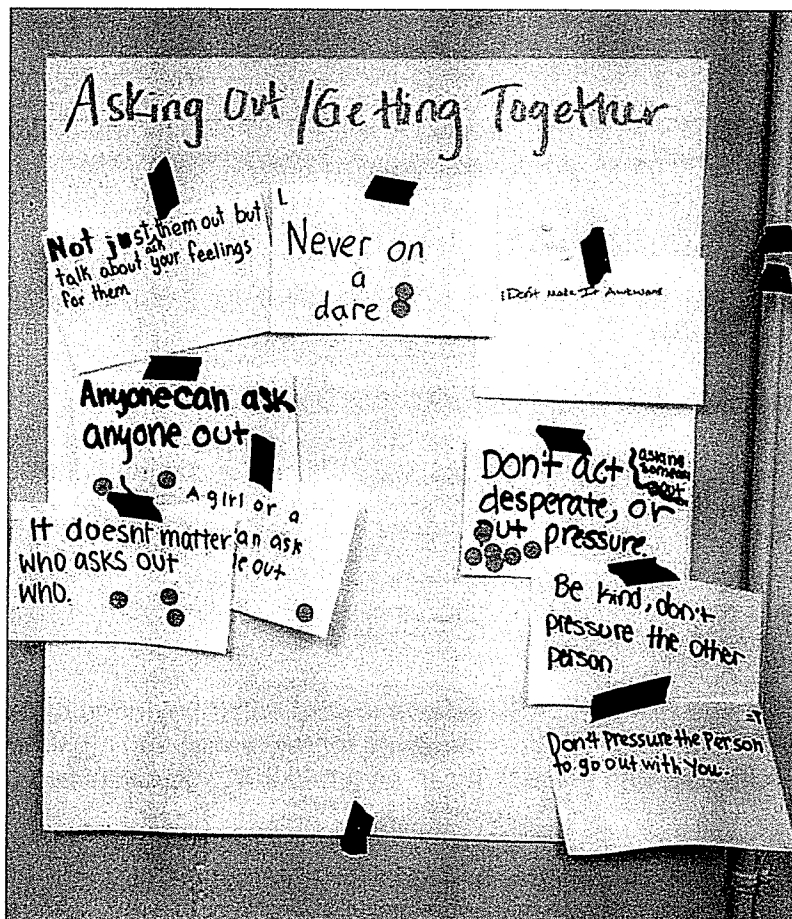 Asking Out/Getting Together
Not just them out but
ask
talk about your feelings
for them
L
Never on
a
dare
Don't Make It Awkward
Anyone can ask
anyone out
A girl or a
an ask
e out
It doesnt matter
who asks out
who.
Don't act
asking
someone
out
desperate, or
put pressure.
Be kind, don't
pressure the other
person
Don't Pressure the Person
to go out with You.